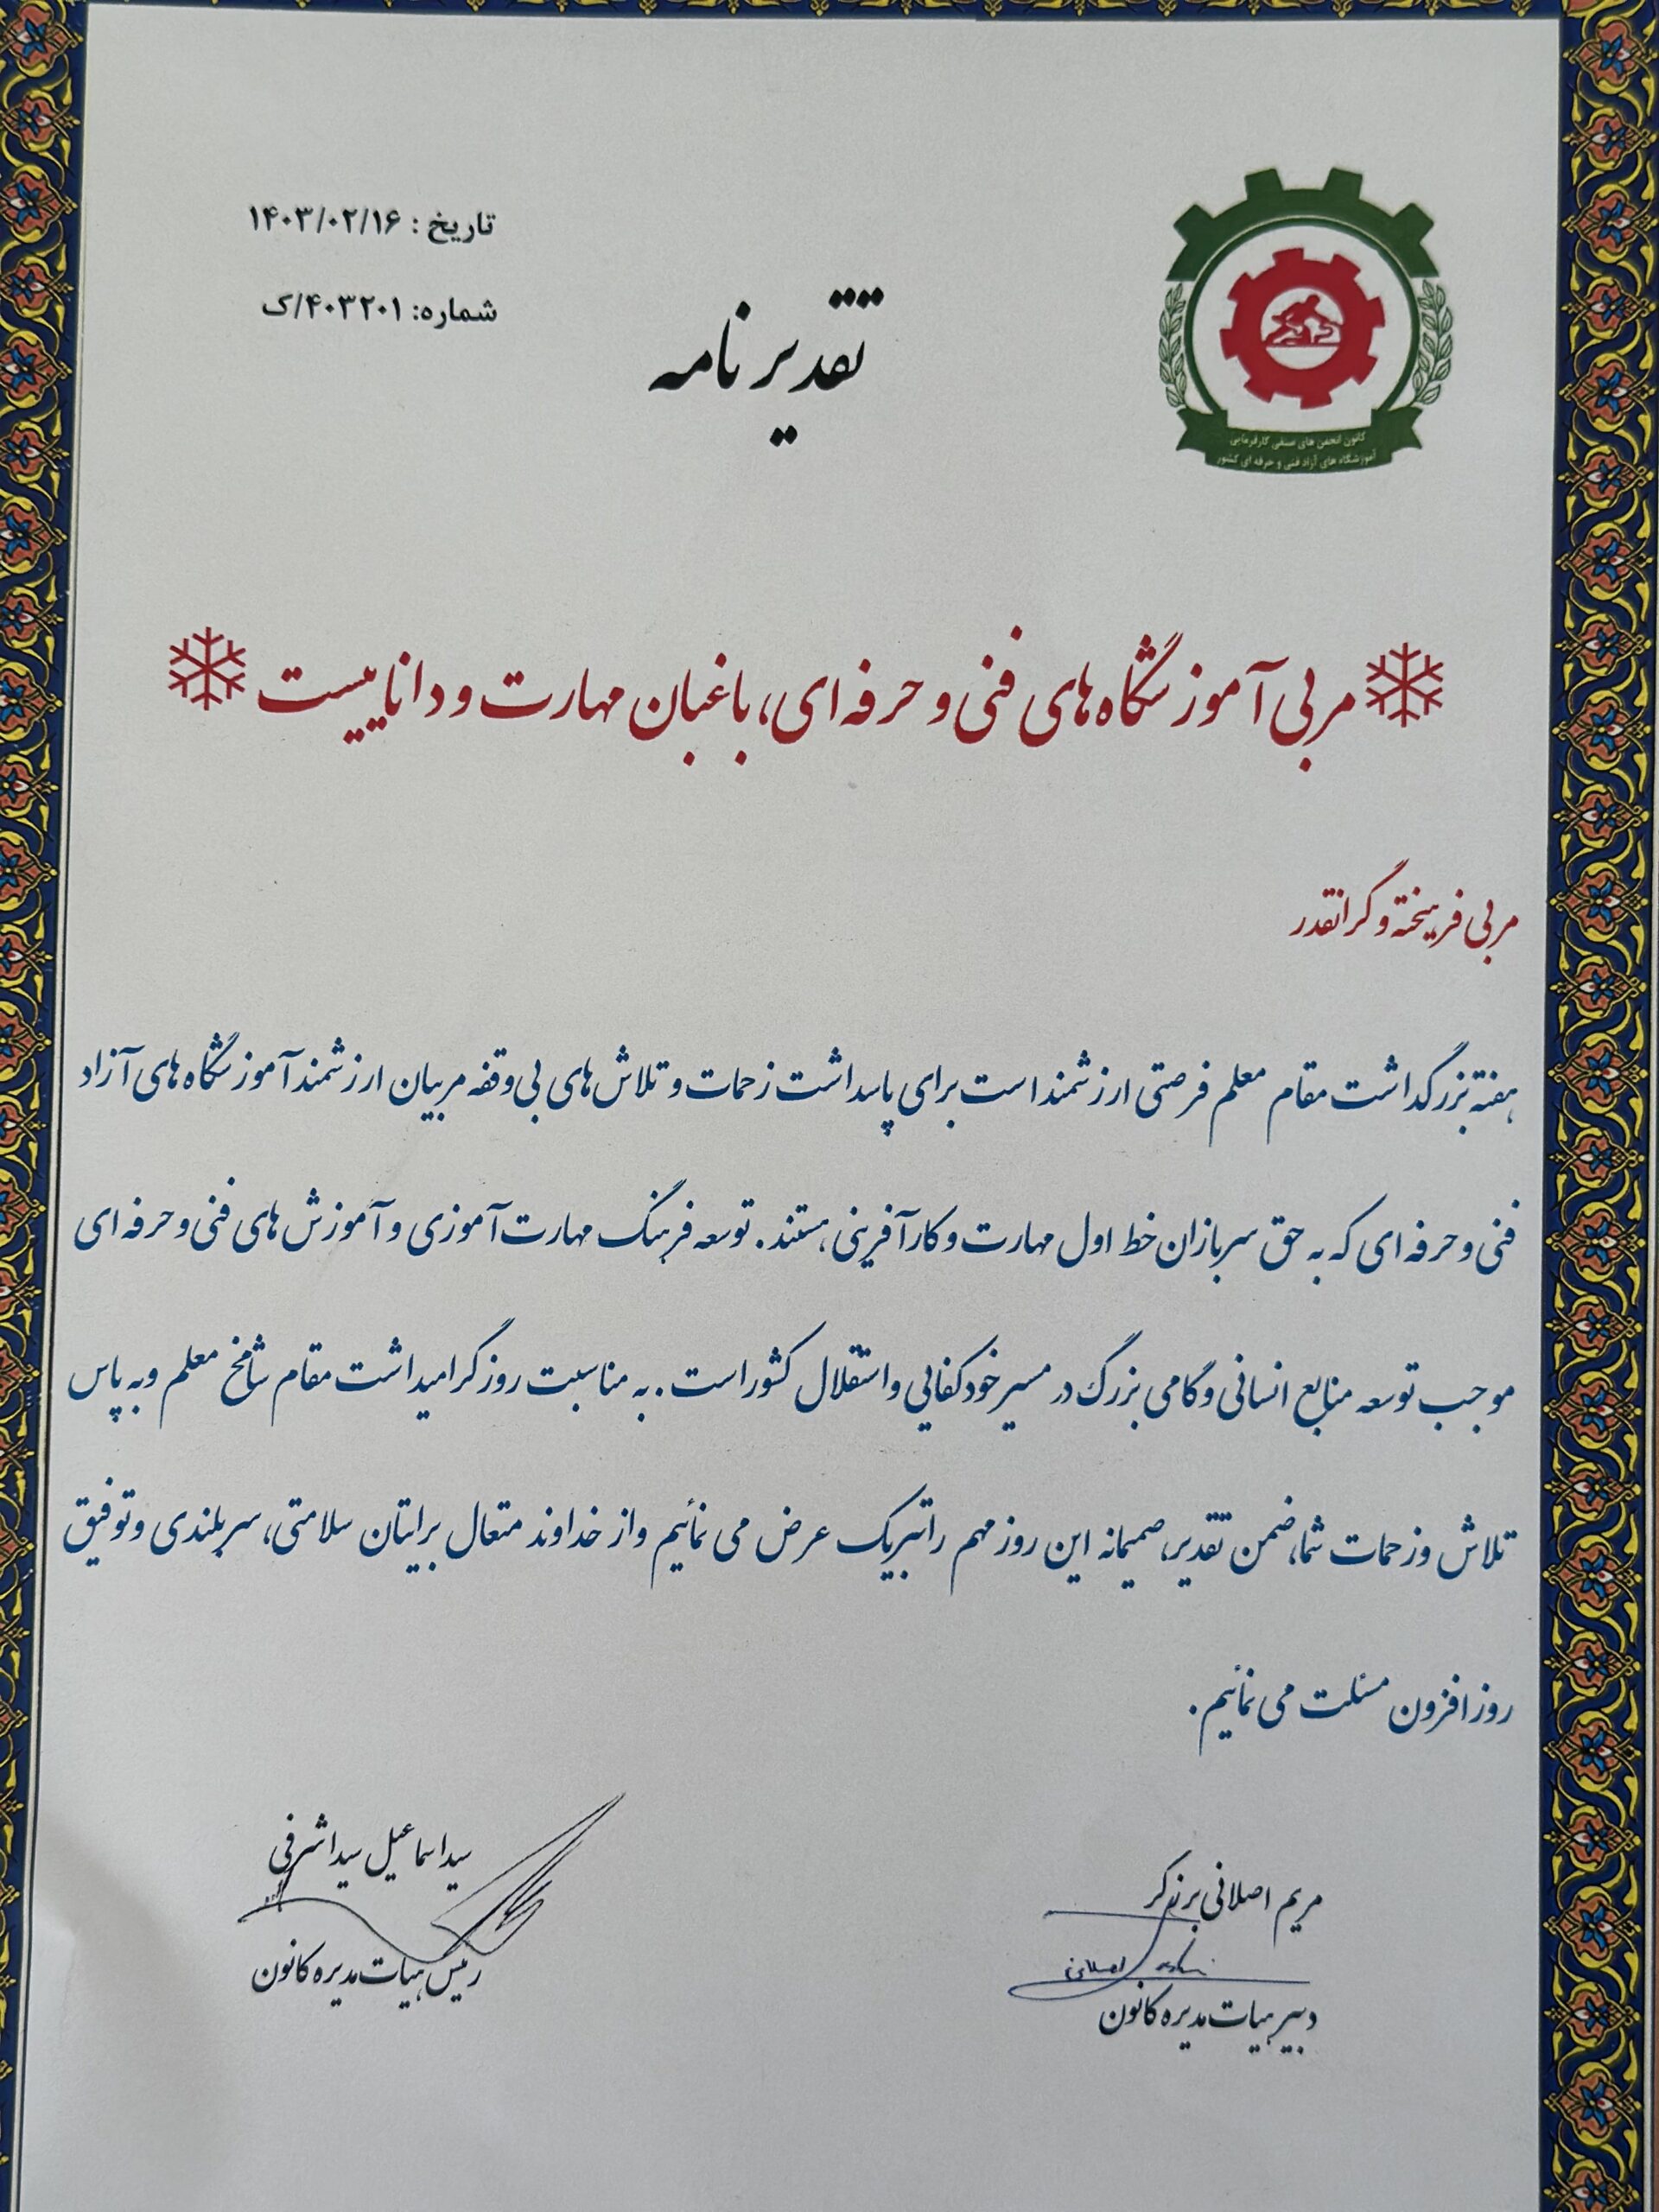 تاریخ : ۱۴۰۳/۰۲/۱۶
شماره: ۴۰۳۲۰۱/ک
تقدیرنامه
کانون انجمن های صنفی کارفرمایی
آموزشگاه های آزاد فنی و حرفه ای کشور
مربی آموزشگاه های فنی و حرفه ای، باغبان مهارت و داناییست
مربی فرهیخته و گرانقدر
هفته بزرگداشت مقام معلم فرصتی ارزشمند است برای پاسداشت زحمات و تلاش های بی وقفه مربیان ارزشمند آموزشگاه های آزاد
فنی و حرفه ای که به حق سربازان خط اول مهارت و کارآفرینی هستند. توسعه فرهنگ مهارت آموزی و آموزش های فنی و حرفه ای
موجب توسعه منابع انسانی و گامی بزرگ در مسیر خودکفایی و استقلال کشور است. به مناسبت روز گرامیداشت مقام شامخ معلم و به پاس
تلاش و زحمات شما، ضمن تقدیر، صمیمانه این روز مهم را تبریک عرض می نمائیم و از خداوند متعال برایتان سلامتی، سربلندی و توفیق
روزافزون مسئلت می نمائیم.
مریم اصلانی برزگر
دبیر هیات مدیره کانون
سید اسماعیل سید اشرفی
رئیس هیات مدیره کانون